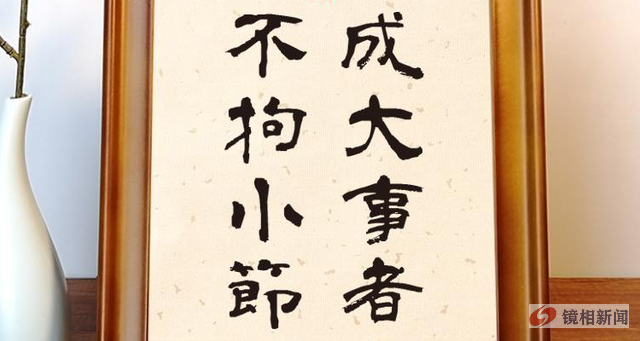 成大事者
不拘小節
镜相新闻